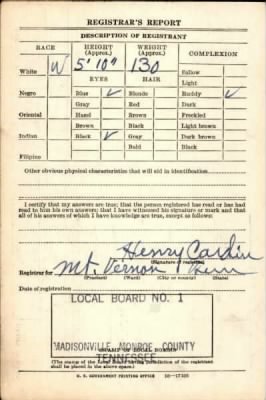 REGISTRAR'S REPORT
DESCRIPTION OF REGISTRANT
RACE HEIGHT (Approx.) WEIGHT (Approx.) COMPLEXION
White W 5' 10" 130 Sallow
EYES HAIR Light
Negro Blue ✓ Blonde Ruddy ✓
Gray Red Dark
Oriental Hazel Brown Freckled
Brown Black Light brown
Indian Black ✓ Gray Dark brown
Bald Black
Filipino
Other obvious physical characteristics that will aid in identification
I certify that my answers are true; that the person registered has read or has had read to him his own answers; that I have witnessed his signature or mark and that all of his answers of which I have knowledge are true, except as follows:
Henry
(Signature of registrar)
Registrar for Mt. Vernon Tenn
(Precinct) (Ward) (City or county) (State)
Date of registration
LOCAL BOARD NO. 1
MADISONVILLE, MONROE COUNTY
(STAMP OF LOCAL BOARD)
TENNESSEE
(The stamp of the Local Board having jurisdiction of the registrant shall be placed in the above space.)
U. S. GOVERNMENT PRINTING OFFICE